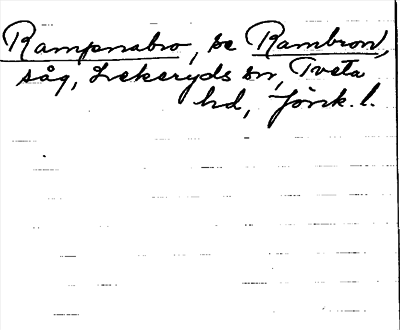 Rampnabro, se Rambron,
såg, Lekeryds sn, Tveta
hd, Jönk. l.